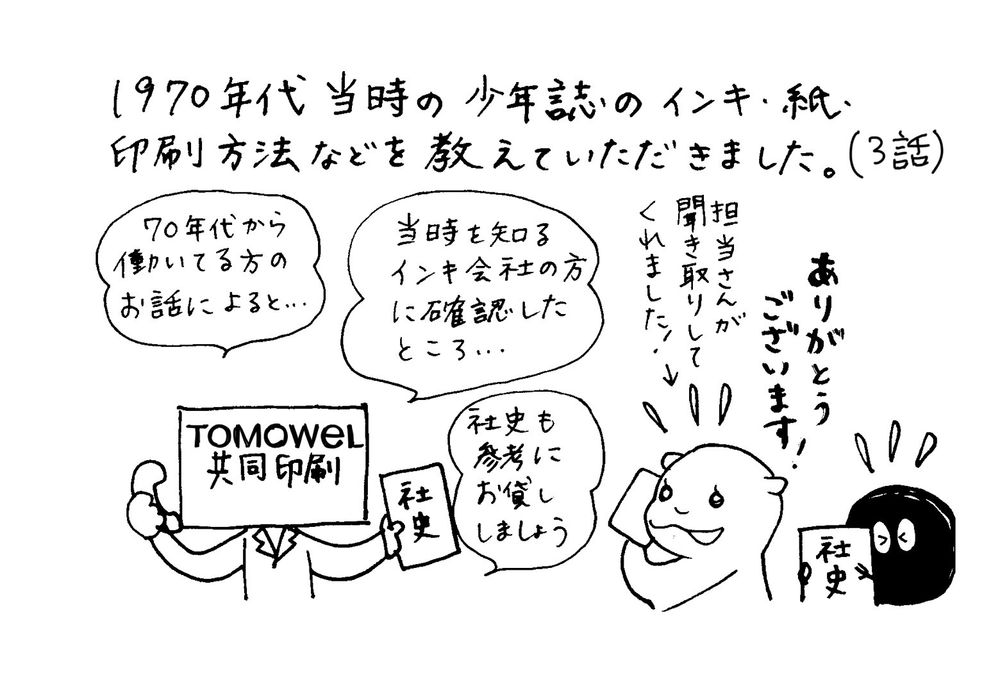 1970年代当時の少年誌のインキ・紙・
印刷方法などを教えていただきました。(3話)
70年代から
働いてる方の
お話によると…
当時を知る
インキ会社の方
に確認した
ところ…
担当さんが
聞き取りして
くれました!
ありがとう
ございます!
TOMOWEL
共同印刷
社史
社史も
参考に
お貸し
しましょう
社史